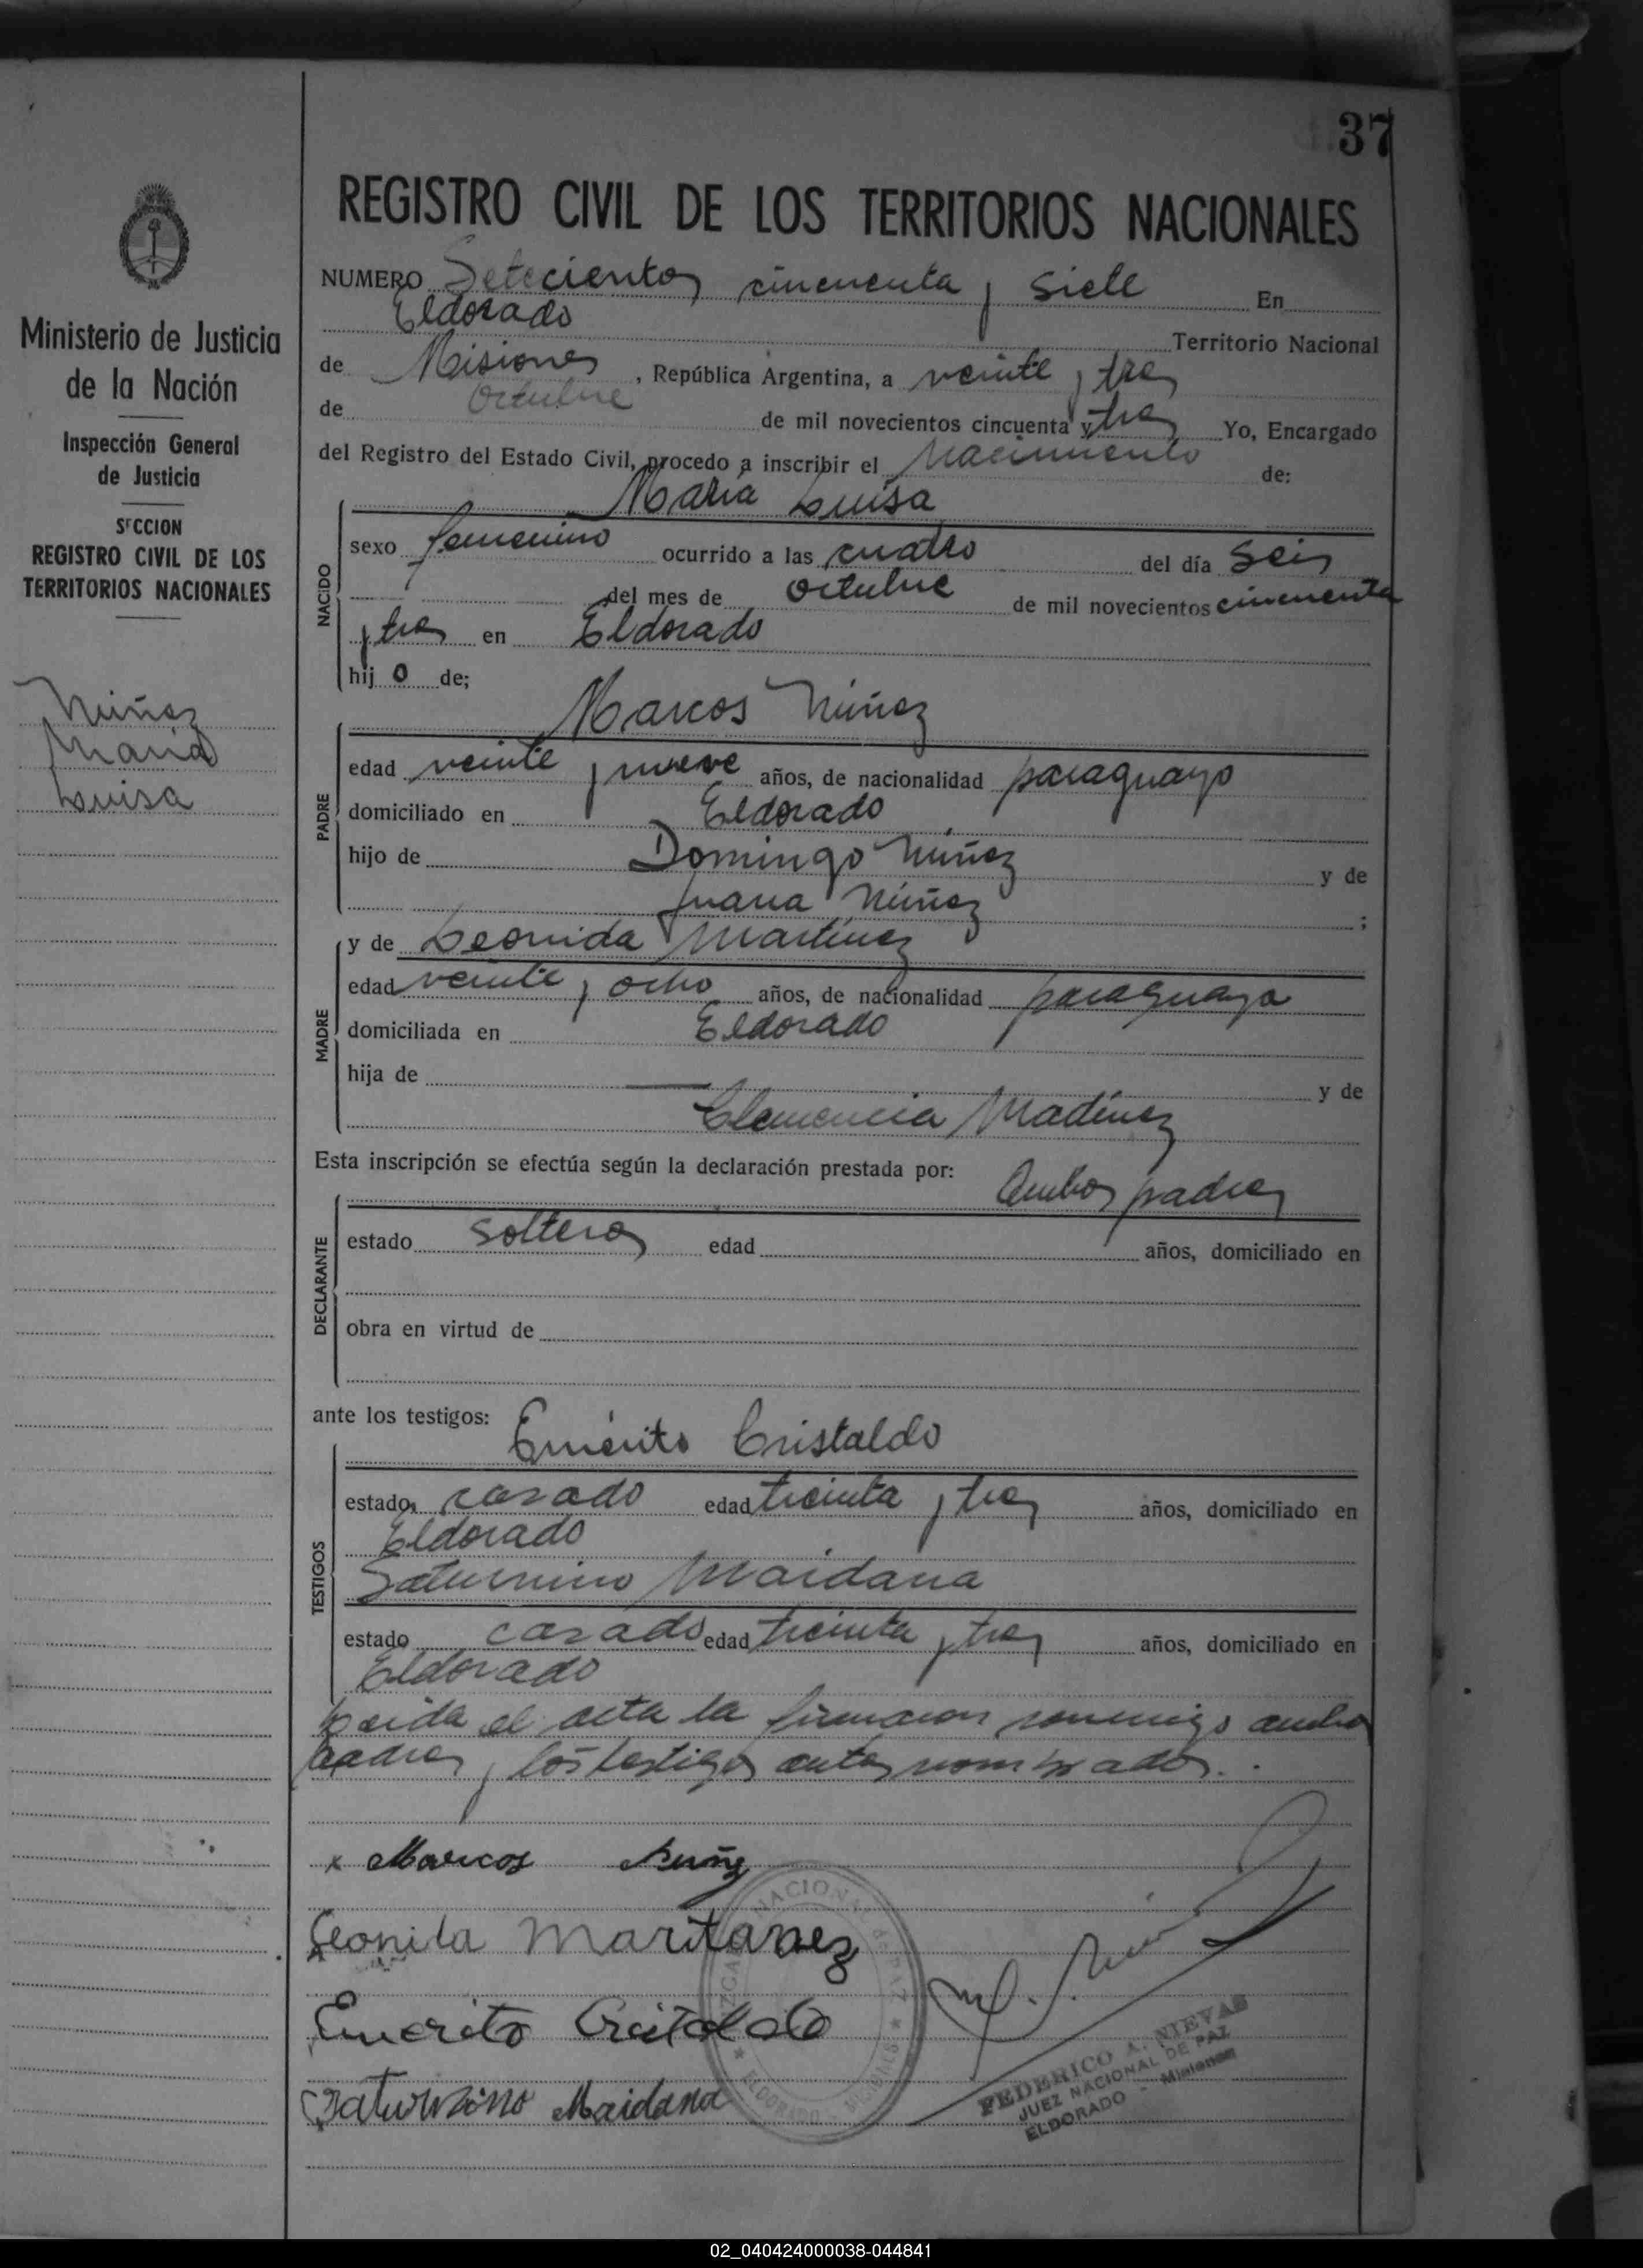 37
REGISTRO CIVIL DE LOS TERRITORIOS NACIONALES
Ministerio de Justicia
de la Nación
Inspección General
de Justicia
SECCION
REGISTRO CIVIL DE LOS
TERRITORIOS NACIONALES
Núñez
Maria
Luisa
NUMERO Setecientos cincuenta y siete En
Eldorado Territorio Nacional
de Misiones, República Argentina, a veinte y tres
de Octubre de mil novecientos cincuenta y tres Yo, Encargado
del Registro del Estado Civil, procedo a inscribir el Nacimiento de:
María Luisa
NACIDO
sexo femenino ocurrido a las cuatro del día Seis
del mes de octubre de mil novecientos cincuenta
y tres en Eldorado
hij o de;
Marcos Núñez
PADRE
edad veinte y nueve años, de nacionalidad paraguayo
domiciliado en Eldorado
hijo de Domingo Núñez y de
Juana Núñez ;
y de Leonida Martínez
MADRE
edad veinte y ocho años, de nacionalidad paraguaya
domiciliada en Eldorado
hija de —— y de
Clemencia Martínez
Esta inscripción se efectúa según la declaración prestada por:
Ambos padres
DECLARANTE
estado solteros edad años, domiciliado en
obra en virtud de
ante los testigos: Emérito Cristaldo
TESTIGOS
estado casado edad treinta y tres años, domiciliado en
Eldorado
Saturnino Maidana
estado casado edad treinta y tres años, domiciliado en
Eldorado
Leida el acta la firmaron conmigo ambos
padres y los testigos antes nombrados.
x Marcos Nuñz
Leonida Martanez
Emerito Cristaldo
Saturnino Maidana
NACIONAL DE PAZ
ELDORADO - MISIONES
FEDERICO A. NIEVAS
JUEZ NACIONAL DE PAZ
ELDORADO - Misiones
02_040424000038-044841